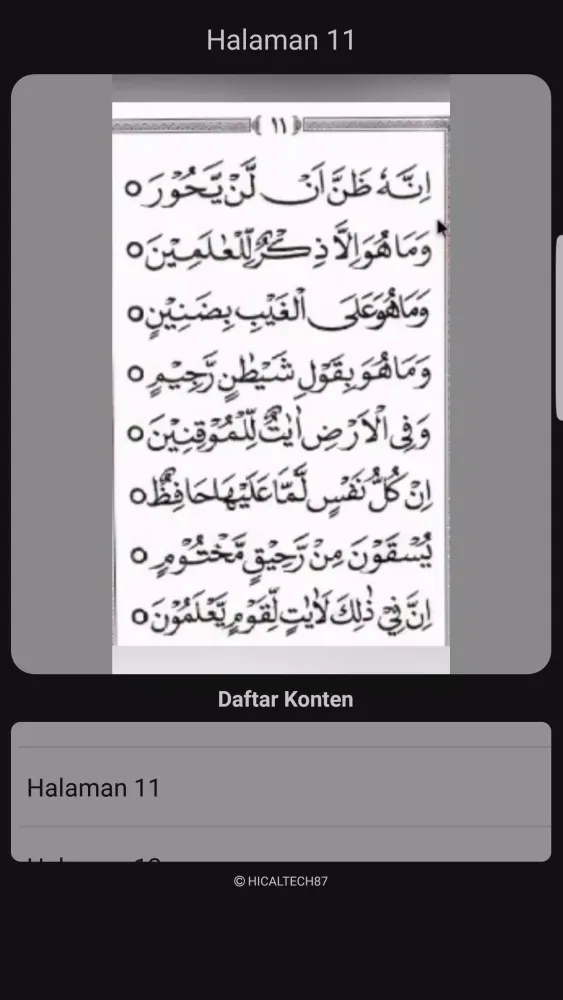 Halaman 11
١١
اِنَّهٗ ظَنَّ اَنْ لَّنْ يَّحُوْرَ ○
وَمَا هُوَ اِلَّا ذِكْرٌ لِّلْعٰلَمِيْنَ ○
وَمَا هُوَ عَلَى الْغَيْبِ بِضَنِيْنٍ ○
وَمَا هُوَ بِقَوْلِ شَيْطٰنٍ رَّجِيْمٍ ○
وَفِى الْاَرْضِ اٰيٰتٌ لِّلْمُوْقِنِيْنَ ○
اِنْ كُلُّ نَفْسٍ لَّمَّا عَلَيْهَا حَافِظٌ ○
يُسْقَوْنَ مِنْ رَّحِيْقٍ مَّخْتُوْمٍ ○
اِنَّ فِيْ ذٰلِكَ لَاٰيٰتٍ لِّقَوْمٍ يَّعْلَمُوْنَ ○
Daftar Konten
Halaman 11
© HICALTECH87